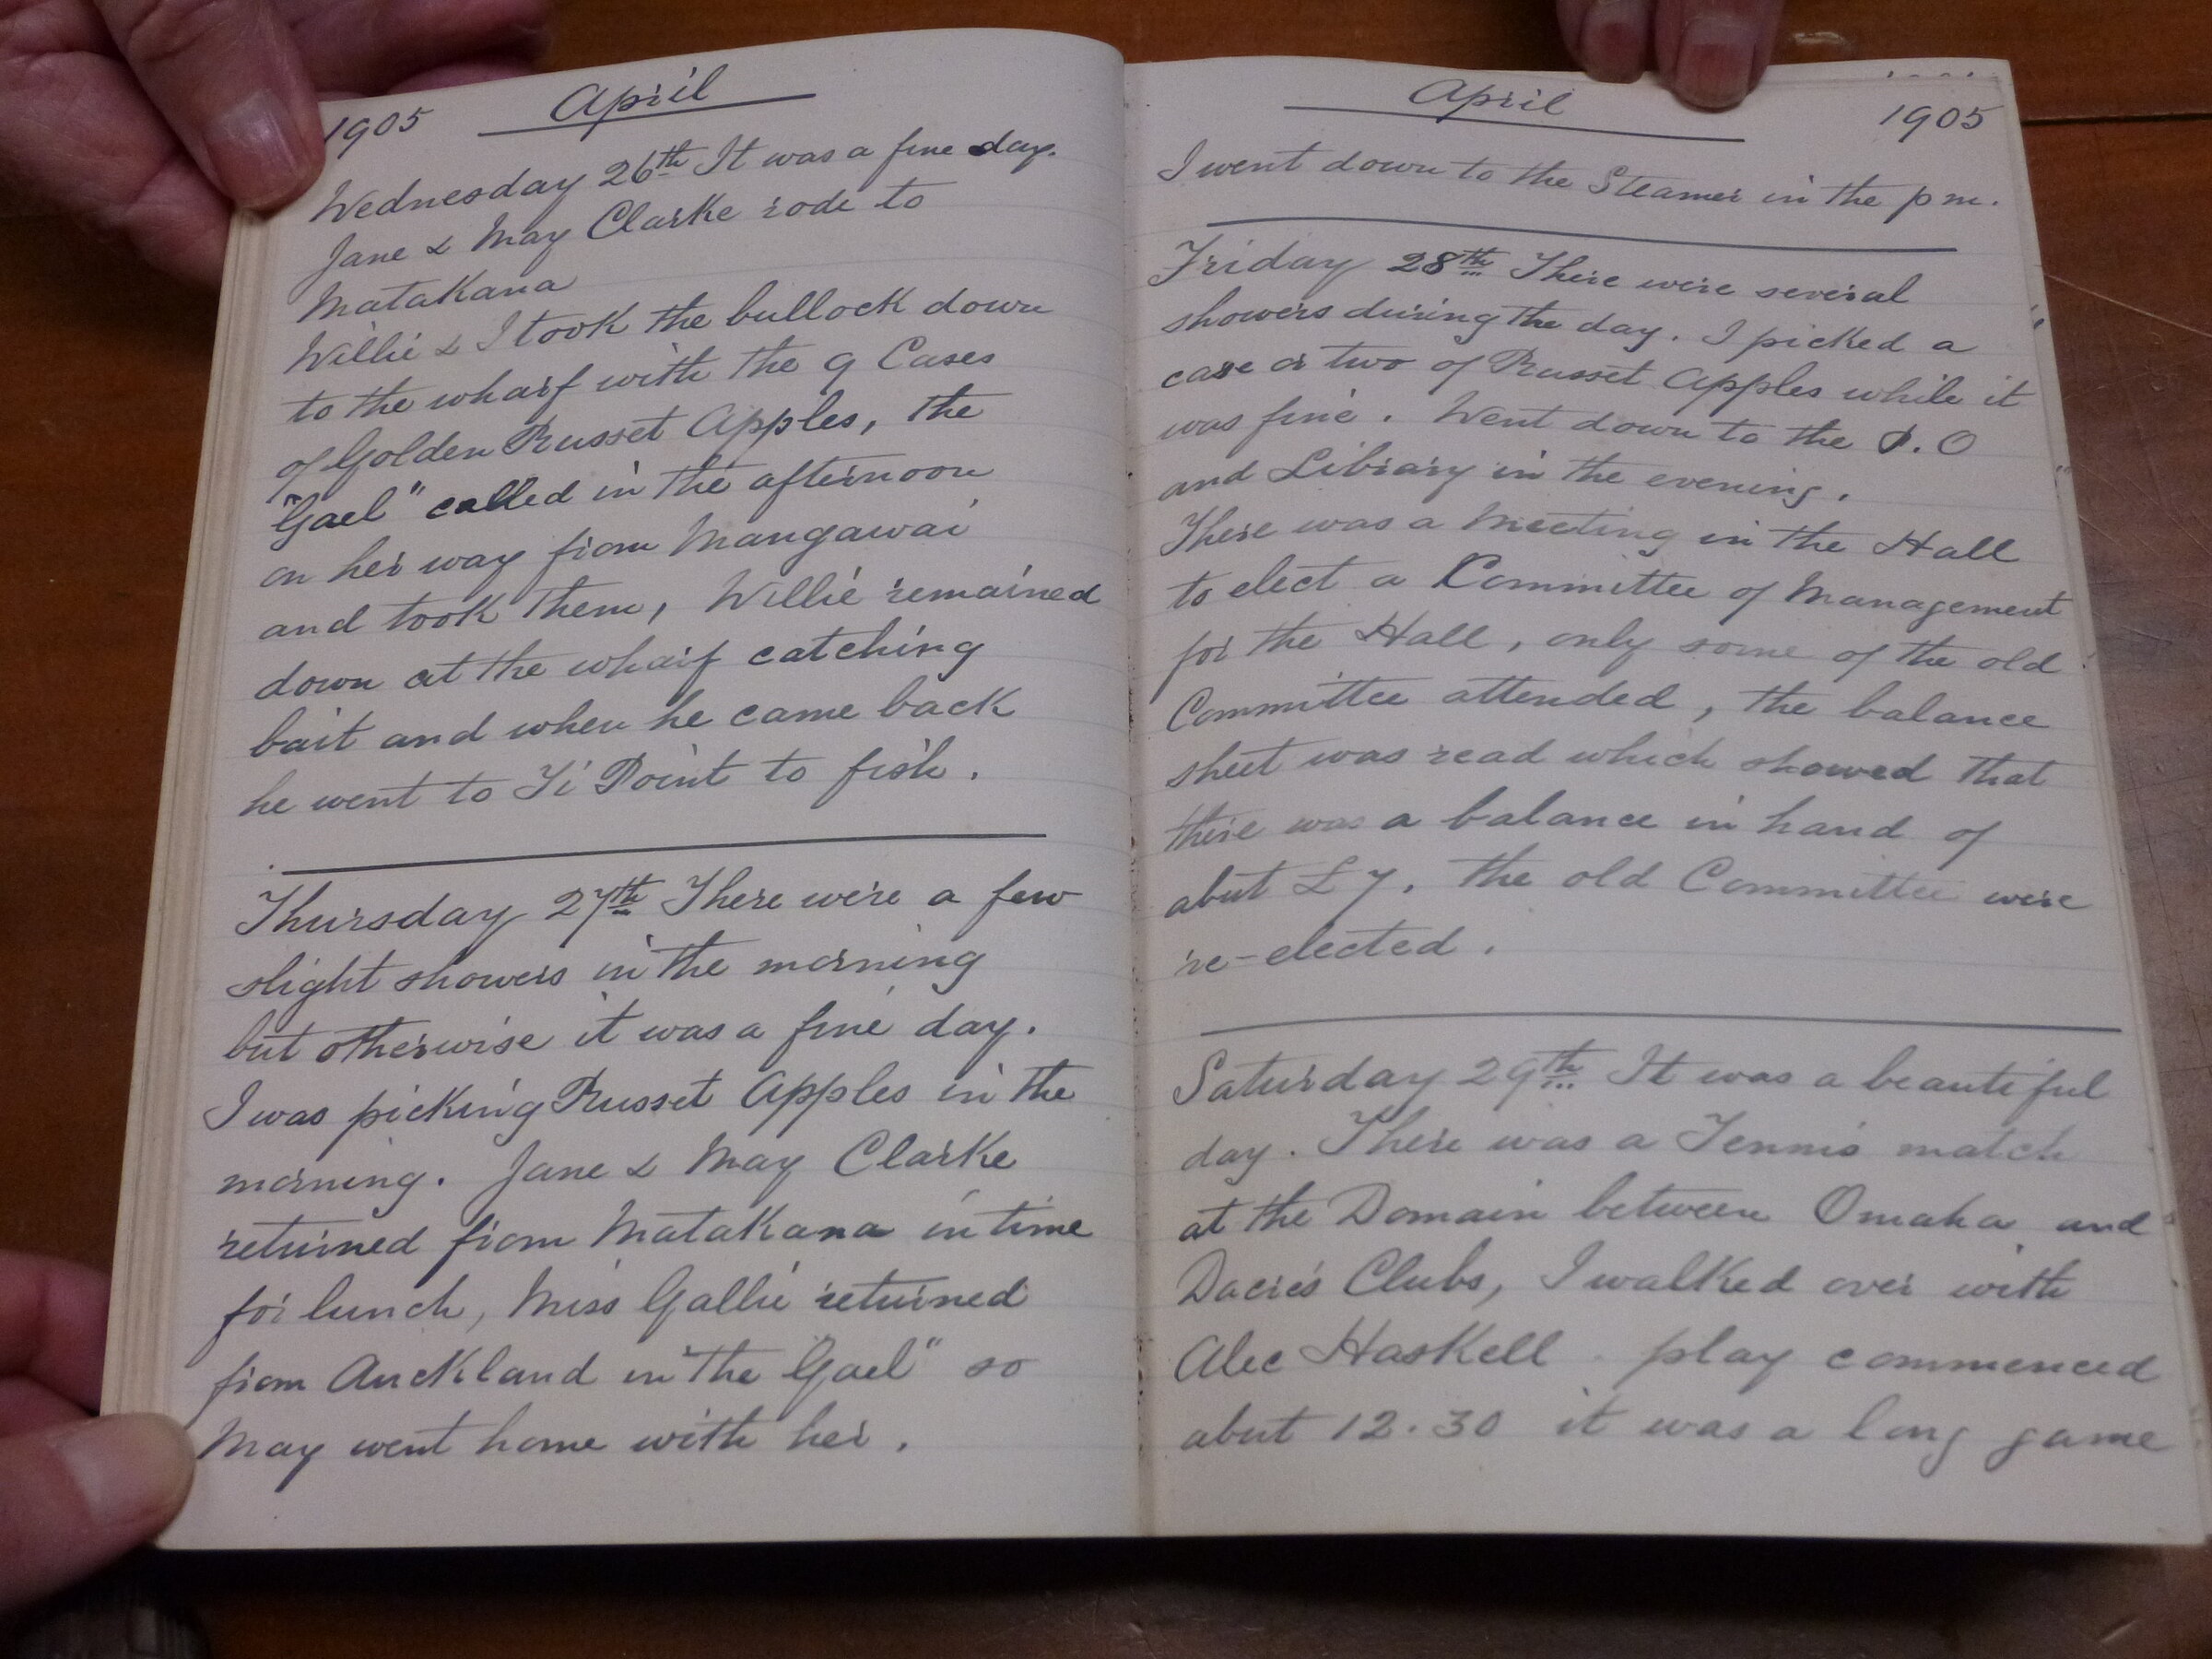 1905 April
Wednesday 26th It was a fine day.
Jane & May Clarke rode to
Matakana
Willie & I took the bullock down
to the wharf with the 9 Cases
of Golden Russet Apples, the
"Gael" called in the afternoon
on her way from Mangawai
and took them, Willie remained
down at the wharf catching
bait and when he came back
he went to Ti Point to fish.
Thursday 27th There were a few
slight showers in the morning
but otherwise it was a fine day.
I was picking Russet Apples in the
morning. Jane & May Clarke
returned from Matakana in time
for lunch, Miss Gallie returned
from Auckland in the "Gael" so
May went home with her.
April 1905
I went down to the Steamer in the pm.
Friday 28th There were several
showers during the day. I picked a
case or two of Russet Apples while it
was fine. Went down to the P.O
and Library in the evening.
There was a Meeting in the Hall
to elect a Committee of Management
for the Hall, only some of the old
Committee attended, the balance
sheet was read which showed that
there was a balance in hand of
abut £7. The old Committee were
re-elected.
Saturday 29th It was a beautiful
day. There was a Tennis match
at the Domain between Omaha and
Dacre's Clubs, I walked over with
Alec Haskell play commenced
abut 12.30 it was a long game